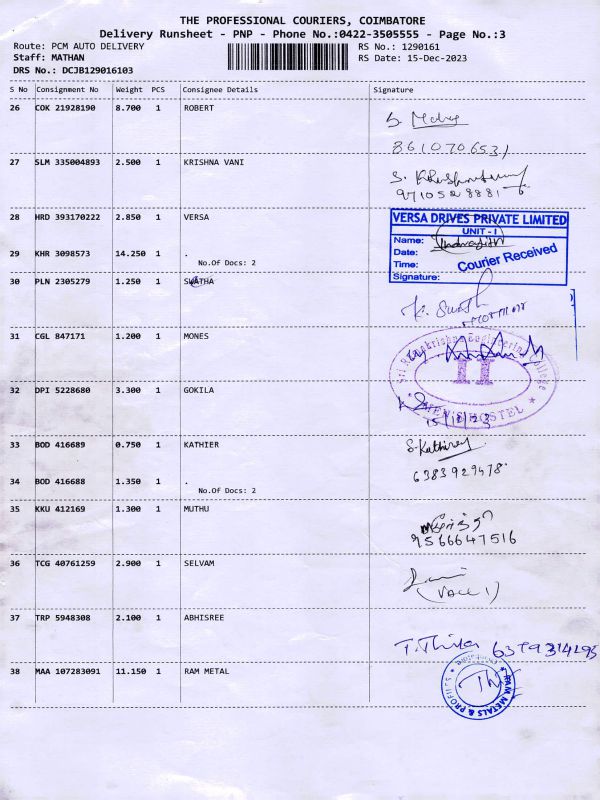 THE PROFESSIONAL COURIERS, COIMBATORE
Delivery Runsheet - PNP - Phone No.:0422-3505555 - Page No.:3
Route: PCM AUTO DELIVERY
RS No.: 1290161
Staff: MATHAN
RS Date: 15-Dec-2023
DRS No.: DCJB129016103
S No Consignment No Weight PCS Consignee Details Signature
26 COK 21928190 8.700 1 ROBERT
8610706531
27 SLM 335004893 2.500 1 KRISHNA VANI
S.
9710528881
28 HRD 393170222 2.850 1 VERSA
VERSA DRIVES PRIVATE LIMITED
UNIT - I
Name:
Date:
Time:
Signature:
Courier Received
29 KHR 3098573 14.250 1 .
No.Of Docs: 2
30 PLN 2305279 1.250 1 SWATHA
K. Swath
31 CGL 847171 1.200 1 MONES
Sri Ramakrishna Engineering College
II
MEN'S HOSTEL
32 DPI 5228680 3.300 1 GOKILA
33 BOD 416689 0.750 1 KATHIER
S. Kathirey
6383929478
34 BOD 416688 1.350 1 .
No.Of Docs: 2
35 KKU 412169 1.300 1 MUTHU
9566647516
36 TCG 40761259 2.900 1 SELVAM
37 TRP 5948308 2.100 1 ABHISREE
6379314295
38 MAA 107283091 11.150 1 RAM METAL
RAM METALS & PROFILES